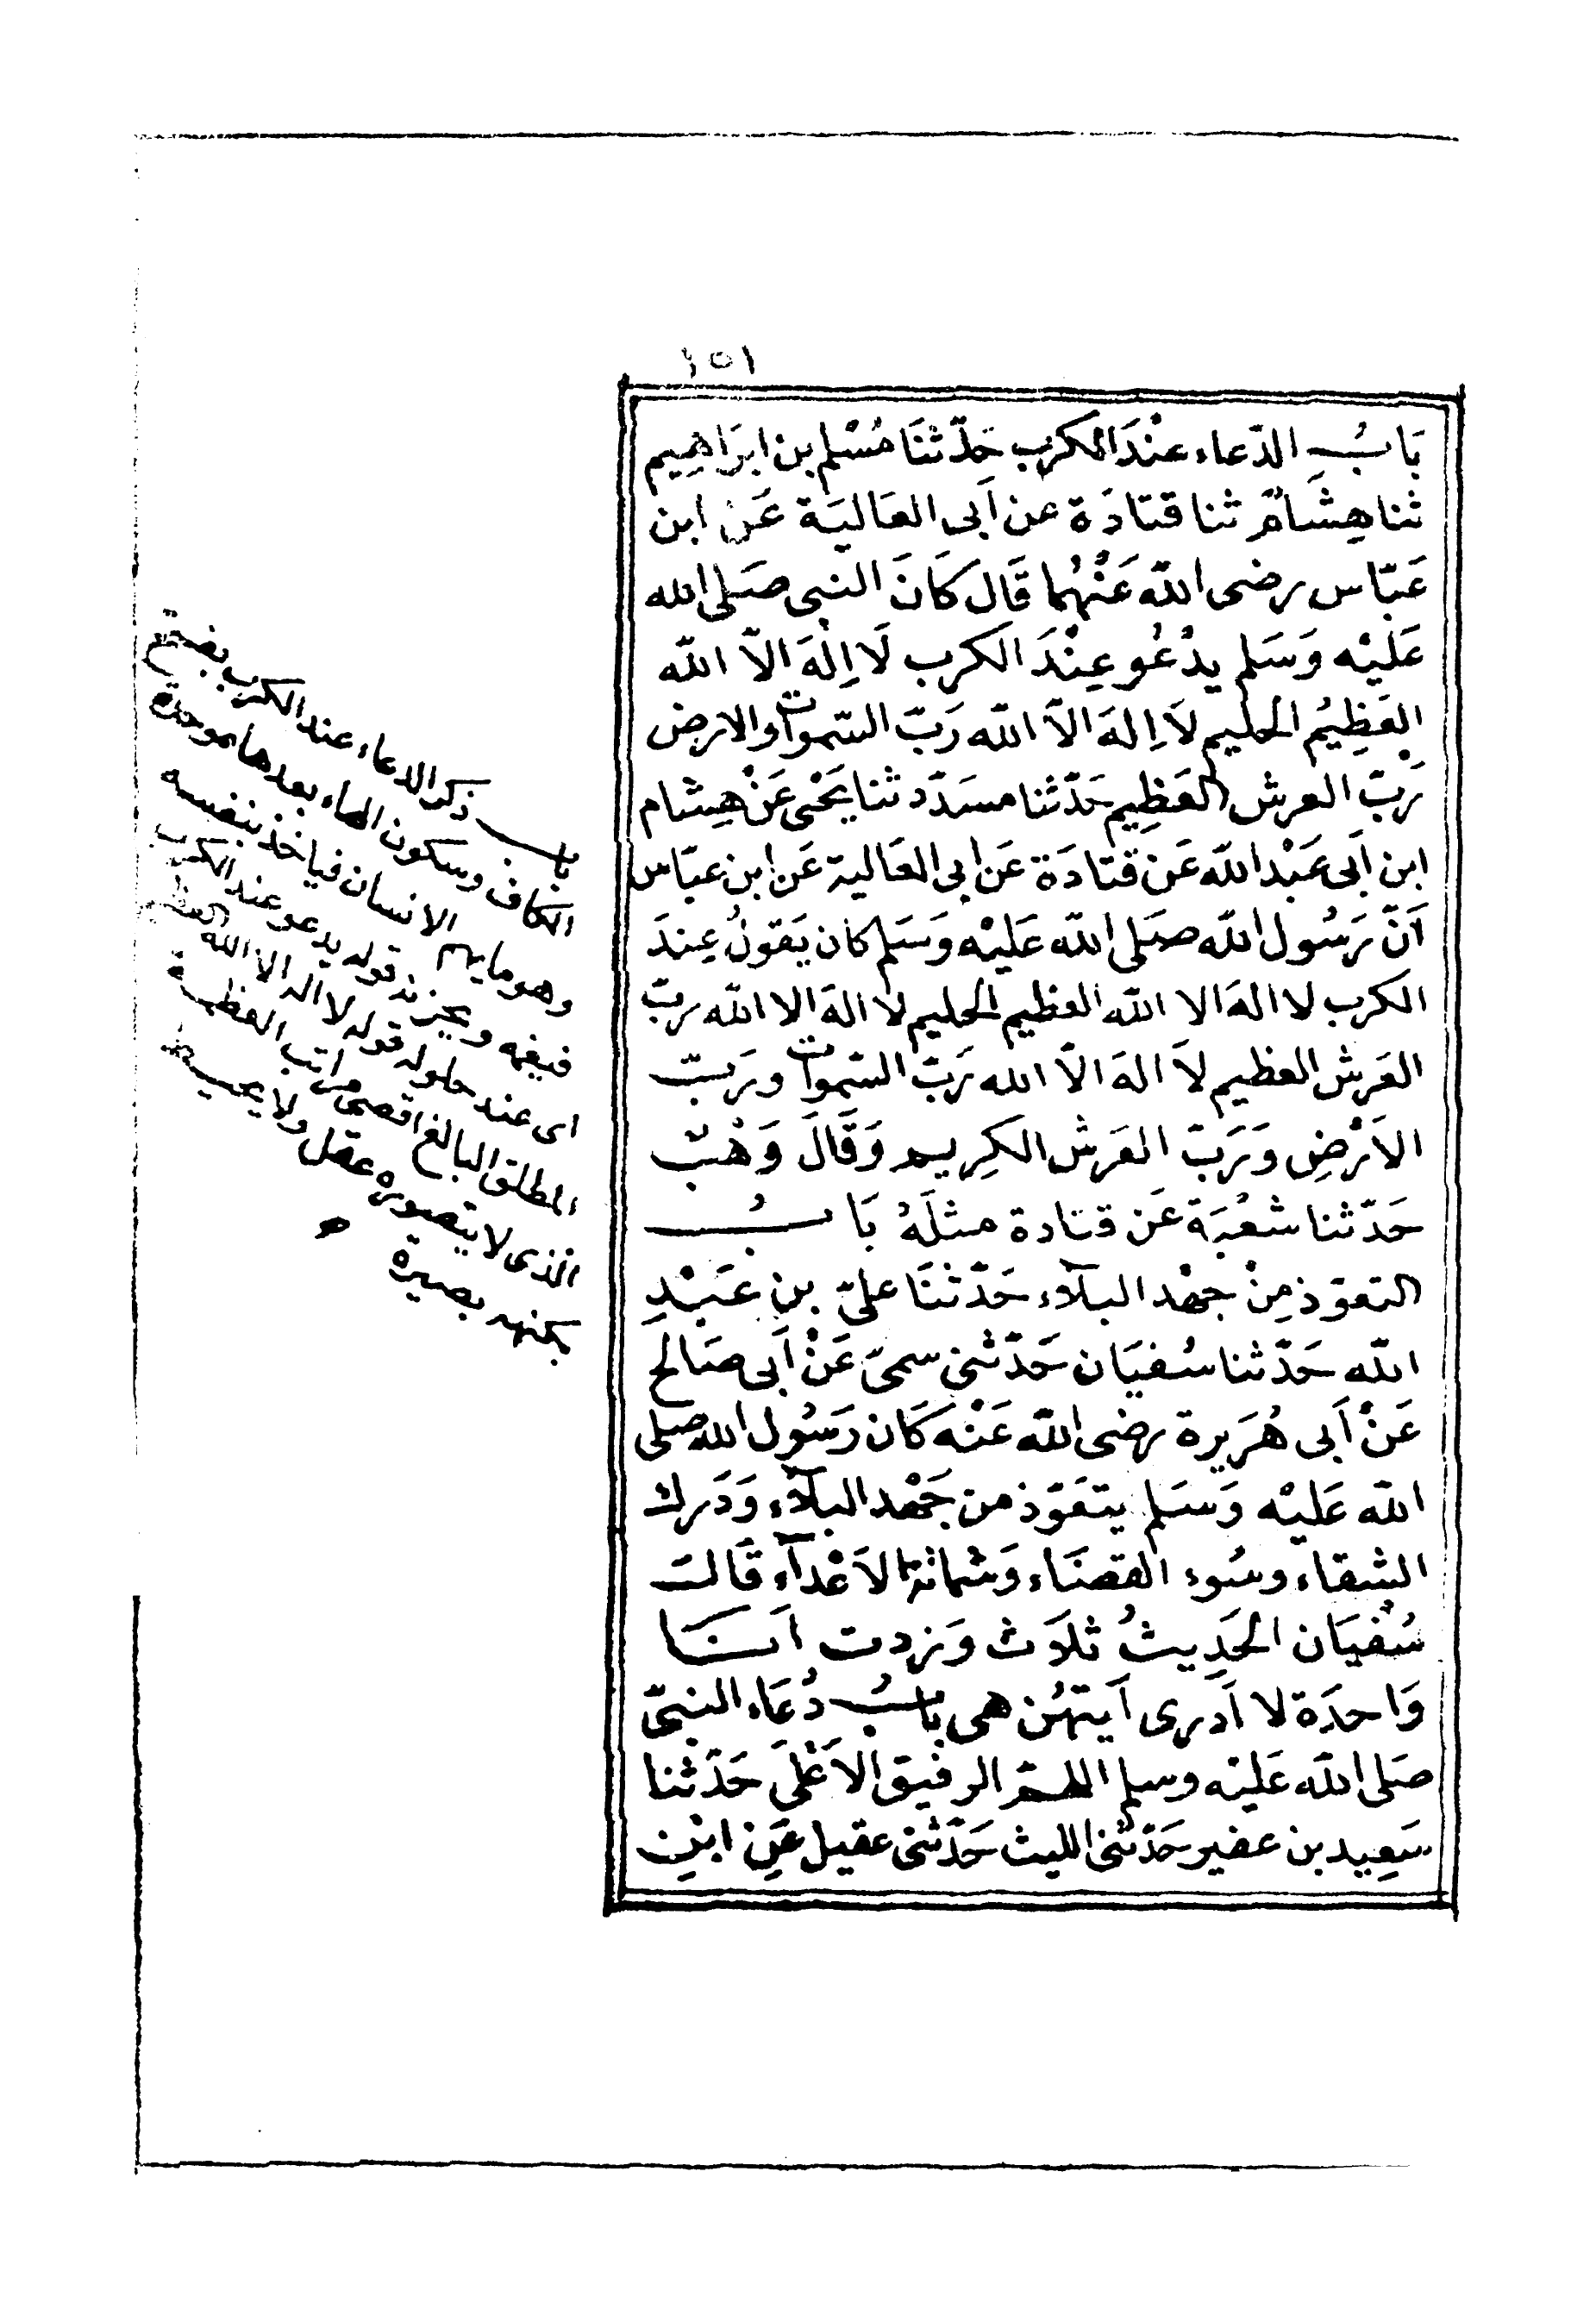 ١٥١
بَابُ الدّعاء عنْدَ الكرب حَدّثنَا مُسْلم بن ابرَاهِيم
ثنا هِشَامٌ ثنا قتادَة عن اَبى العَاليَة عَن ابن
عَبّاس رضى اللّه عَنْهُما قَال كَانَ النبى صَلى الله
عَليْه وَسَلم يدْعُو عِنْدَ الكرب لَا اِلٰهَ الاّ اللّه
العَظِيْمُ الحليم لاَ اِلهَ الاّ اللّه رَبّ السّموات والارض
رَبّ العرش العَظِيم حَدّثنا مسَدّد ثنا يَحْيى عَنْ هِشام
ابن اَبى عَبْد اللّه عَن قتادَة عَن ابى العَالية عَن ابن عبّاس
اَنّ رَسُول اللّه صَلى اللّه عَليْه وَسَلم كان يَقولُ عِندَ
الكرب لا الهَ الا اللّه العظيم الحليم لا الهَ الا اللّه ربّ
العَرش العظيم لاَ الهَ الاّ الله رَبّ السّموات ورَبّ
الاَرْضِ وَرَبّ العَرش الكِريم وَقَالَ وَهْبٌ
حَدّثنا شعْبَة عَن قتادة مثلَهُ بَابُ
التعوّذ مِنْ جهْد البلآء حَدّثنَا علىّ بن عَبْدِ
اللّه حَدّثنا سُفيَان حَدّثنى سمىّ عَنْ اَبى صَالح
عَنْ اَبى هُرَيرة رضى اللّه عَنْه كَان رَسُول الله صلى
اللّه عَليْه وَسَلم يتعَوّذ من جَهْد البلآء وَدَرك
الشقاء وسُوء القضَاء وَشماتة الاَعْدآء قَالَ
سُفيَان الحَدِيثُ ثلاَث وَزدت اَنَا
وَاحدَة لا اَدرى اَيتهُن هى بابُ دُعَاء النبىّ
صَلى اللّه عَليْه وسلم اللهمّ الرفيق الاَعْلى حَدّثنا
سَعِيد بن عفير حَدّثنى الليث حَدّثنى عقيل عَنِ ابْنِ
باب ذكر الدعاء عند الكرب بفتح
الكاف وسكون الراء بعدها موحدة
وهو ما يهم الانسان فياخذ بنفسه
فيغمه ويحزنه قوله يدعو عند الكرب
اى عند حلوله قوله لا اله الا الله العظيم
المطلق البالغ اقصى مراتب العظمة
الذى لا يتصوره عقل ولا يحيط
بكنهه بصيرة